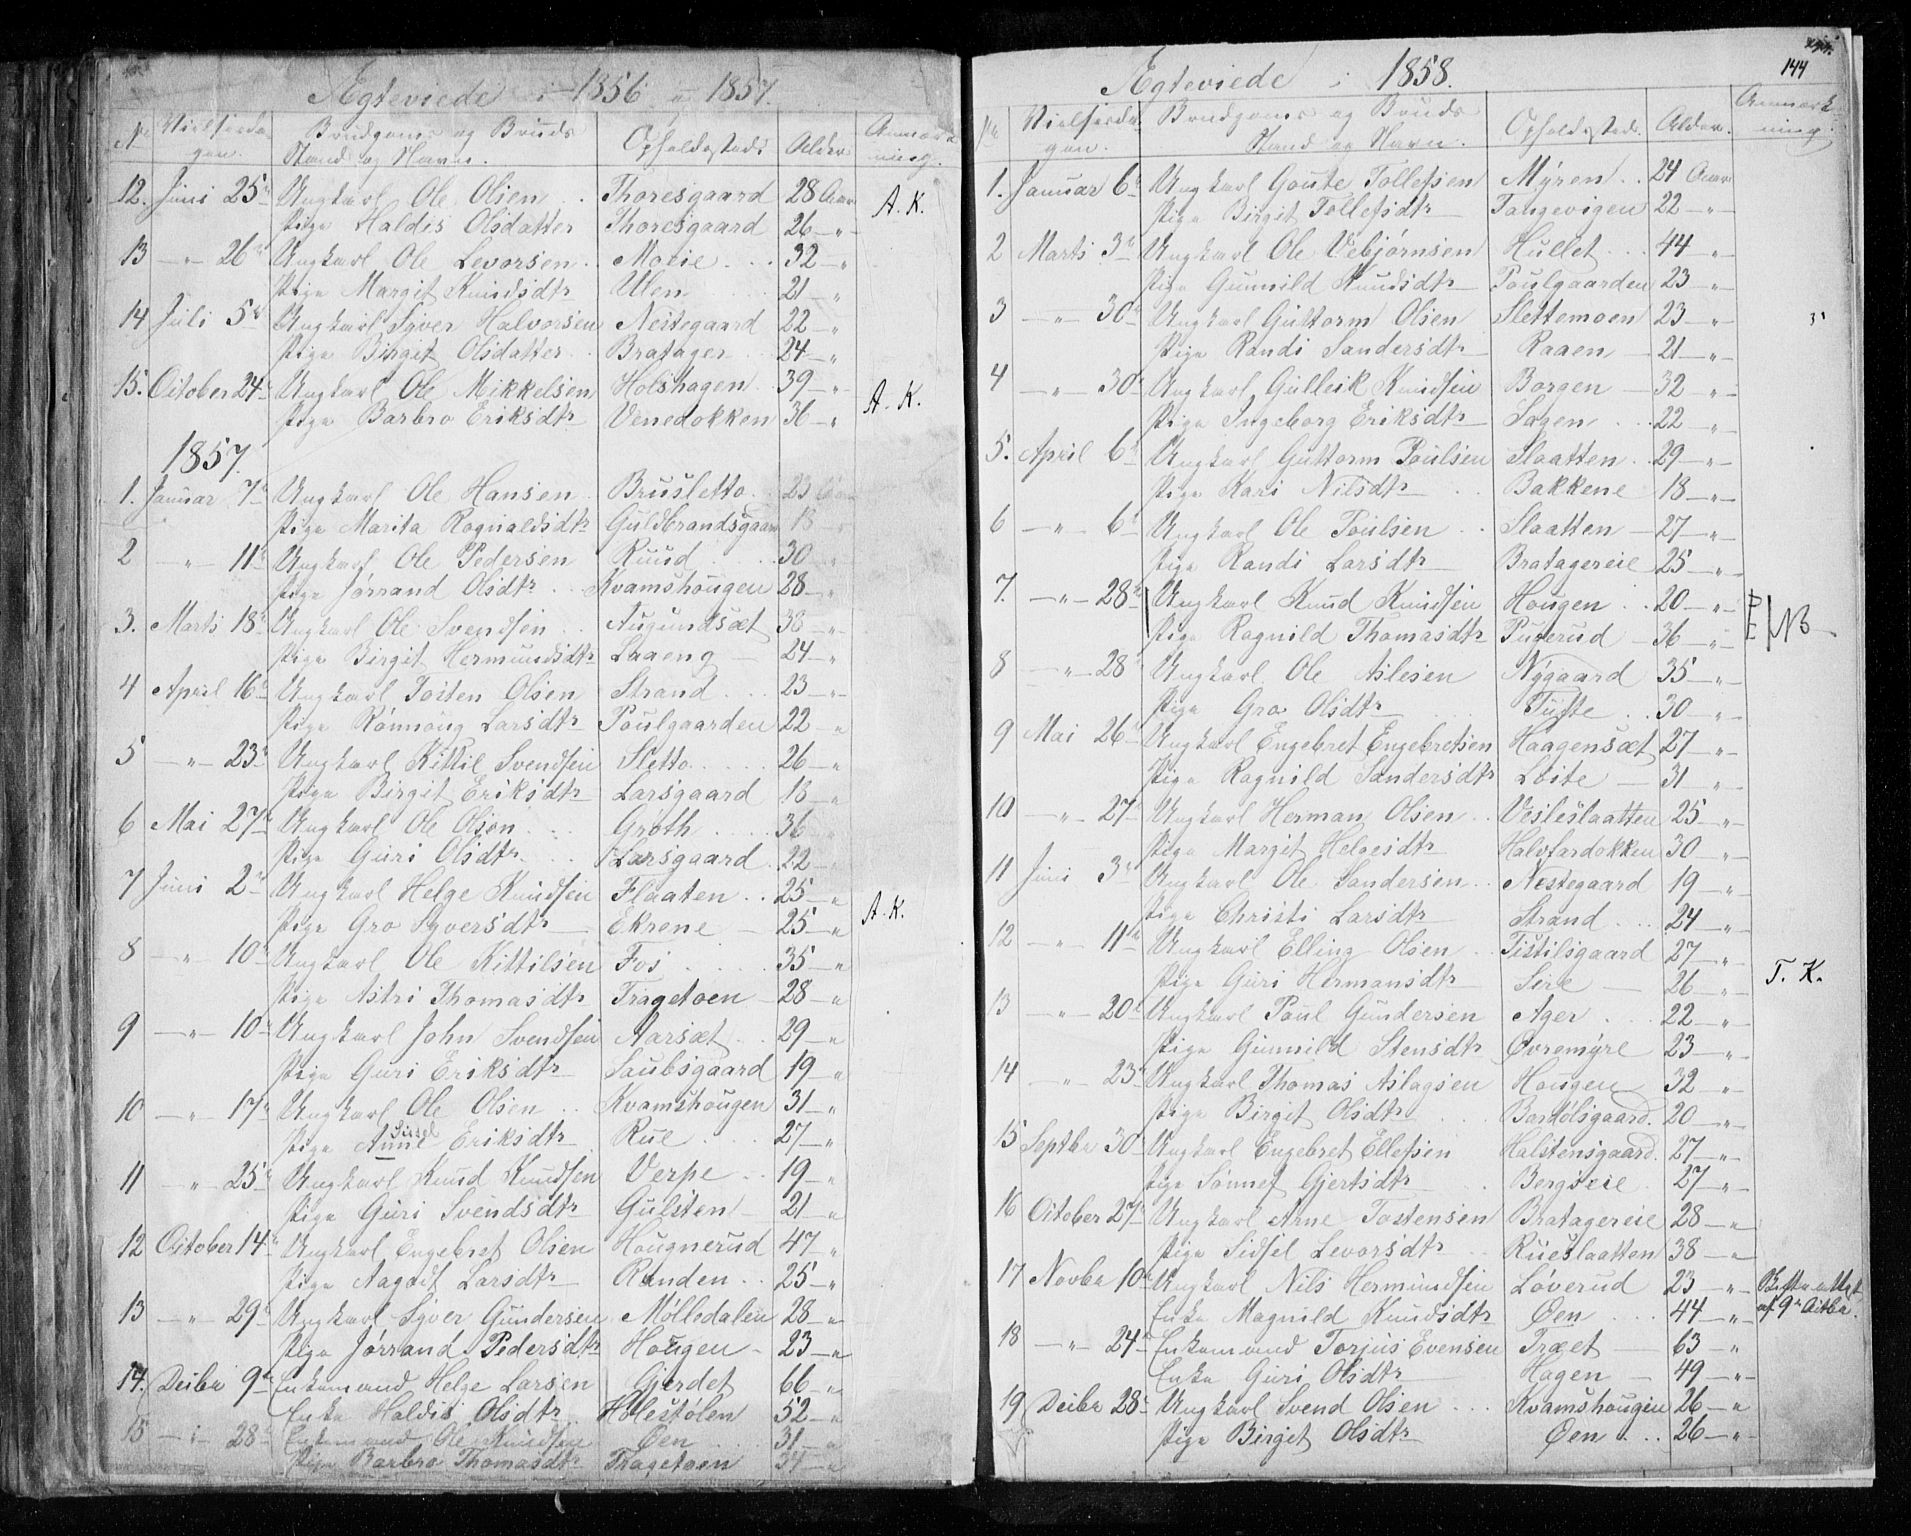 Ægteviede i 1856 og 1857.
No Vielsesda- Brudgoms og Bruds Opholdssted: Alder Anmærk-
gen. Stand og Navn. ning.
12. Juni 25de Ungkarl Ole Olsen Thoresgaard 28 Aar A. K.
Pige Haldis Olsdatter Thoresgaard 26 — "
13 — " — 26de Ungkarl Ole Levorsen Moeie 32 — "
Pige Margit Knudsdtr Ulen 21 — "
14 Juli 5te Ungkarl Syver Halvorsen Nestegaard 22 — "
Pige Birgit Olsdatter Bratager 24 — "
15. October 24de Ungkarl Ole Mikkelsen Holshagen 39 — " A. K.
Pige Barbro Eriksdtr Venedokken 36 — "
1857.
1. Januar 7de Ungkarl Ole Hansen Brusletto 23 Aar
Pige Marita Ragnaldsdtr Guldbrandsgaard 18 — "
2 — " — 11te Ungkarl Ole Pedersen Ruud 30 — "
Pige Jørrand Olsdtr Kvamshougen 28 — "
3. Marts 18de Ungkarl Ole Svendsen Augundsæt 38 — "
Pige Birgit Hermundsdtr Laaeng 24 — "
4 April 16de Ungkarl Tosten Olsen Strand 23 — "
Pige Rønnoug Larsdtr Poulgaarden 22 — "
5 — " — 23de Ungkarl Kittil Svendsen Sletto 26 — "
Pige Birgit Eriksdtr Larsgaard 18 — "
6 Mai 27de Ungkarl Ole Olsøn Grøth 36 — "
Pige Guri Olsdtr Larsgaard 22 — "
7 Juni 2de Ungkarl Helge Knudsen Flaaten 25 — " A. K.
Pige Gro Syversdtr Ekrene 25 — "
8 — " — 10de Ungkarl Ole Kittilsen Fos 35 — "
Pige Astri Thomasdtr Tragetoen 28 — "
9 — " — 10de Ungkarl John Svendsen Aarsæt 29 — "
Pige Guri Eriksdtr Saubsgaard 19 — "
10 — " — 17de Ungkarl Ole Olsen Kvamshougen 31 — "
Sissel
Pige Anne Eriksdtr Rue 27 — "
11 — " — 25de Ungkarl Knud Knudsen Verpe 19 — "
Pige Guri Svendsdtr Gulsten 21 — "
12 October 14de Ungkarl Engebret Olsen Hougnerud 47 — "
Pige Aagodt Larsdtr Randen 25 — "
13 — " — 29de Ungkarl Syver Gundersen Mølledalen 28 — "
Pige Jørrand Pedersdtr Hougen 23 — "
14. Decbr 9de Enkemand Helge Larsen Gjerdet 66 — "
Enke Haldis Olsdtr Holestølen 52 — "
15 — " — 28de Enkemand Ole Knudsen Øen 31 — "
Pige Barbro Thomasdtr Tragetoen 37 — "
144
Ægteviede i 1858.
No Vielsesda- Brudgoms og Bruds Opholdssted. Alder. Anmærk-
gen. Stand og Navn. ning.
1. Januar 6te Ungkarl Goute Tollefsen Myren 24 Aar
Pige Birgit Tollefsdtr Tangevigen 22 — "
2 Marts 3de Ungkarl Ole Vebjørnsen Hullet 44 — "
Pige Gunnild Knudsdtr Poulgaarden 23 — "
3 — " — 30de Ungkarl Guttorm Olsen Slettemoen 23 — "
Pige Randi Sandersdtr Raaen 21 — "
4 — " — 30de Ungkarl Gulleik Knudsen Borgen 32 — "
Pige Ingeborg Eriksdtr Sagen 22 — "
5. April 6te Ungkarl Guttorm Poulsen Slaatten 29 — "
Pige Kari Nilsdtr Bakkene 18 — "
6 — " — 6te Ungkarl Ole Poulsen Slaatten 27 — "
Pige Randi Larsdtr Bratagereie 25 — "
7. — " — 28de Ungkarl Knud Knudsen Hougen 20 — " NB
Pige Ragnild Thomasdtr Puterud 36 — "
8 — " — 28de Ungkarl Ole Aslesen Nygaard 35 — "
Pige Gro Olsdtr Tufte 30 — "
9 Mai 26de Ungkarl Engebret Engebretsen Haagensæt 27 — "
Pige Ragnild Sandersdtr Loite 31 — "
10 — " — 27de Ungkarl Herman Olsen Vesleslaatten 25 — "
Pige Margit Helgesdtr Halvfardokken 30 — "
11 Juni 3de Ungkarl Ole Sandersen Nestegaard 19 — "
Pige Christi Larsdtr Strand 24 — "
12 — " — 11te Ungkarl Elling Olsen Tistilsgaard 27 — "
Pige Guri Hermansdtr Sere 26 — " T. K.
13 — " — 20de Ungkarl Paul Gundersen Ager 22 — "
Pige Gunnild Stensdtr Øvremyre 23 — "
14 — " — 23de Ungkarl Thomas Aslagsen Hougen 32 — "
Pige Birgit Olsdtr Bartolsgaard. 20 — "
15 Septbr 30de Ungkarl Engebret Ellefsen Halstensgaard. 27 — "
Pige Sønnef Gjertsdtr Bergseie 27 — "
16 October 27de Ungkarl Arne Tostensen Bratagereie 28 — "
Pige Sidsel Levorsdtr Rueslaatten 38 — "
17 Novbr 10de Ungkarl Nils Hermundsen Løverud 23 — "
Enke Magnild Knudsdtr Øen 44 — " af 9de Octbr.
18 — " — 24de Enkemand Torjus Evensen Træet 63 — "
Enke Guri Olsdtr Hagen 49 — "
19 Decbr 28de Ungkarl Svend Olsen Kvamshougen 26 — "
Pige Birget Olsdtr Øen 26 — "